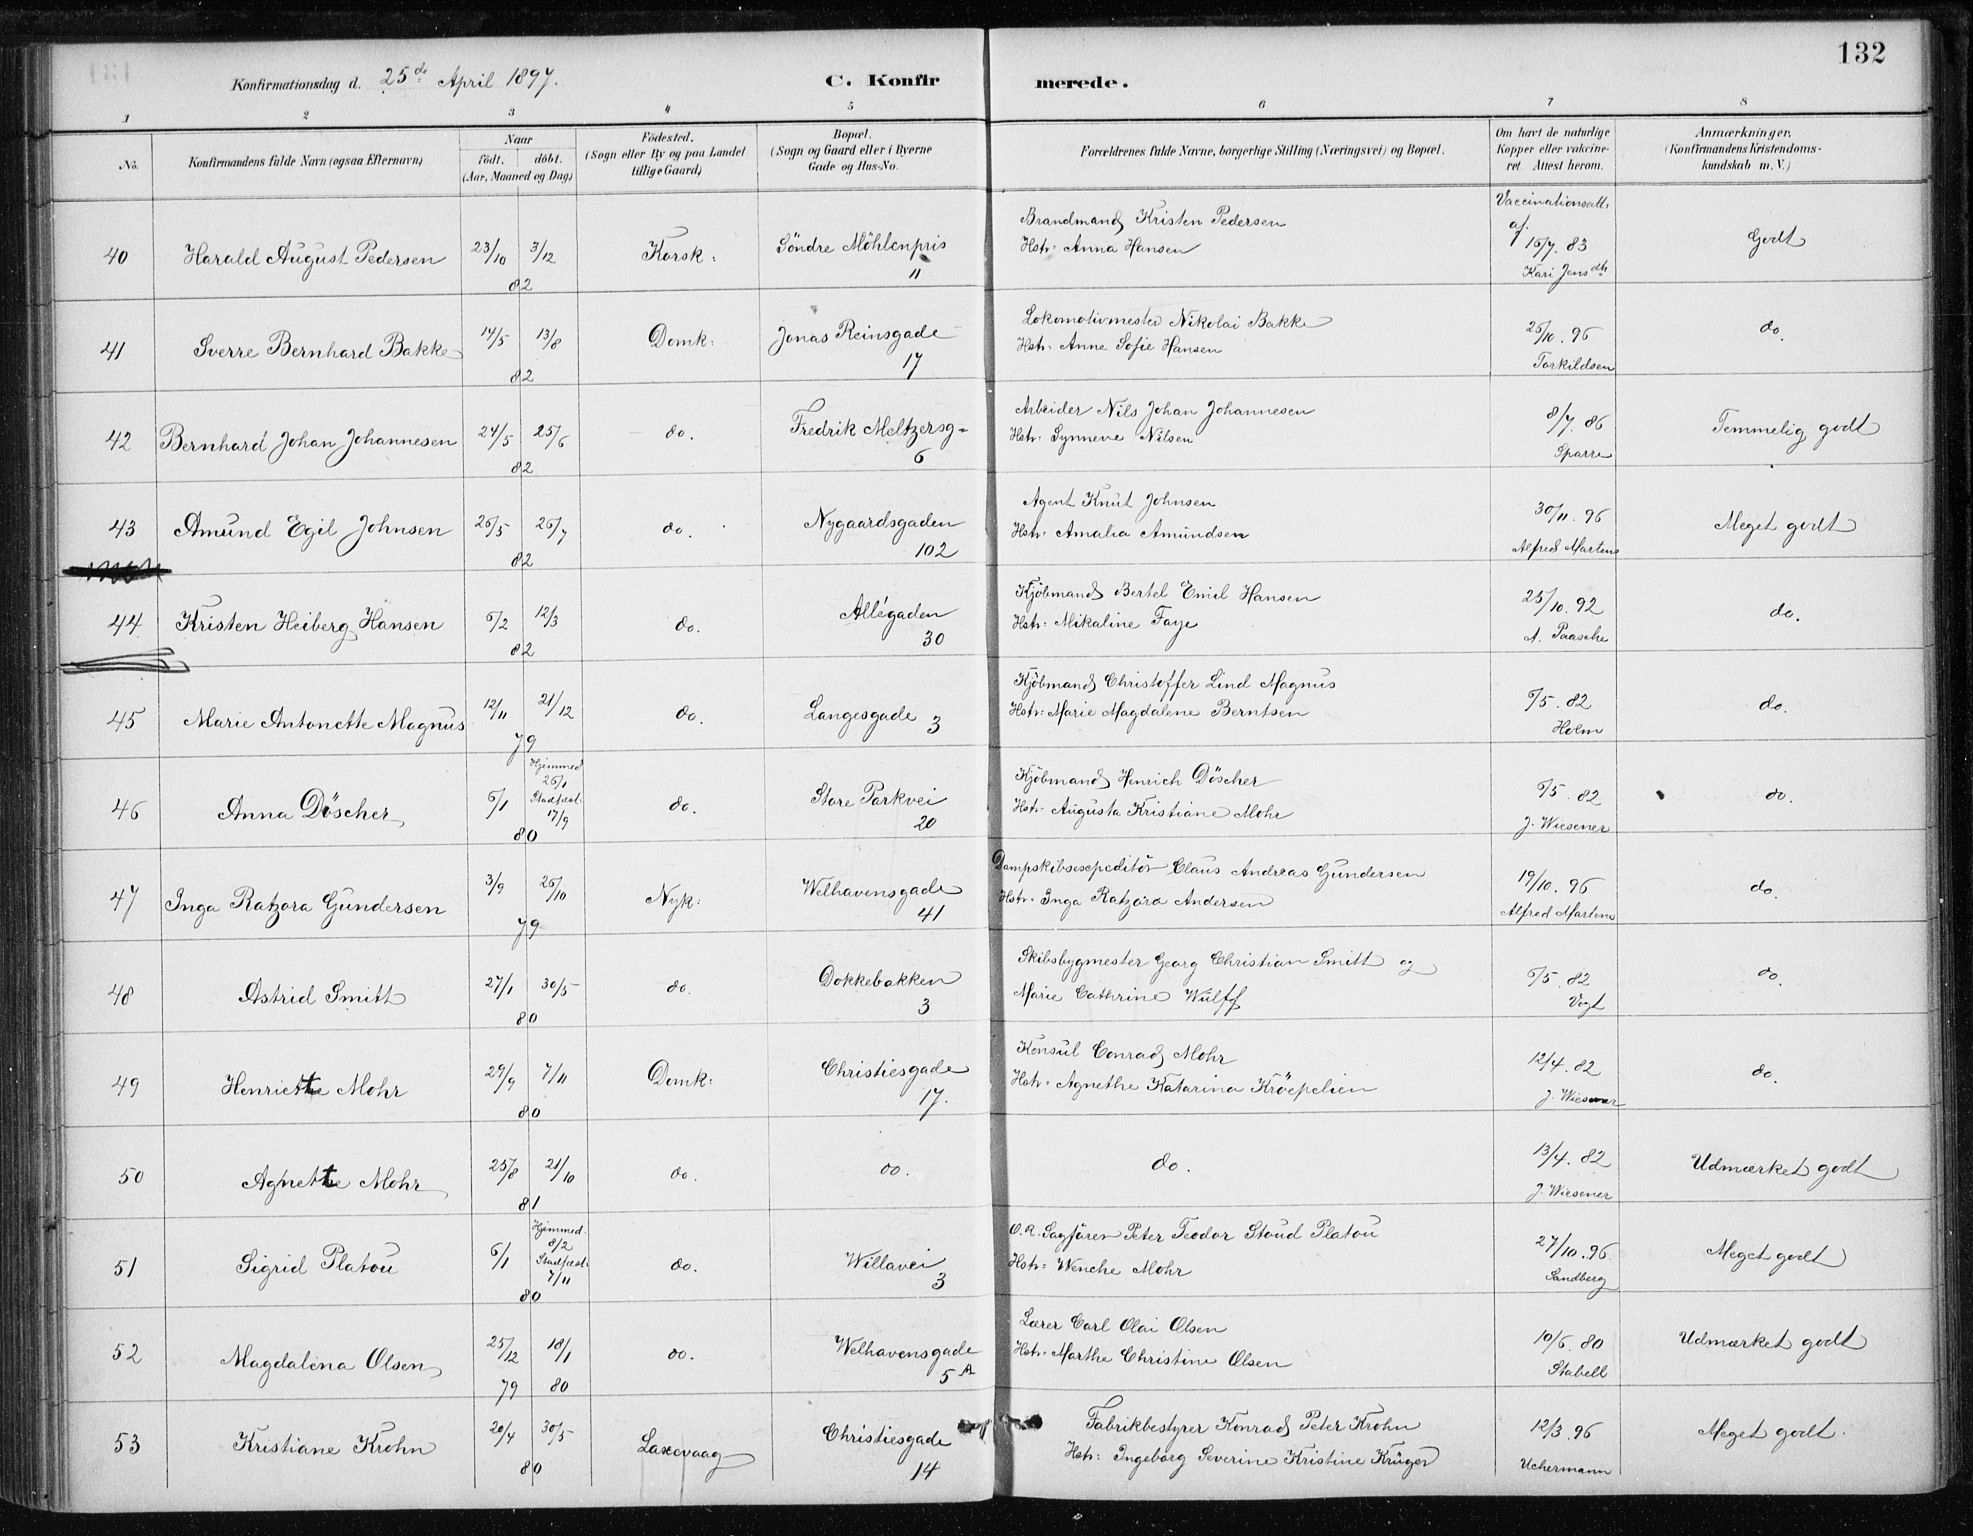 132
Konfirmationsdag d. 25de April 1897.
C. Konfirmerede.
1 2 3 4 5 6 7 8
No.
Konfirmandens fulde Navn (ogsaa Efternavn)
Naar
födt. döbt.
(Aar, Maaned og Dag)
Födested.
(Sogn eller By og paa Landet
tillige Gaard)
Bopæl.
(Sogn og Gaard eller i Byerne
Gade og Hus-No.
Forældrenes fulde Navne, borgerlige Stilling (Næringsvei) og Bopæl.
Om havt de naturlige
Kopper eller vakcine-
ret. Attest herom.
Anmærkninger.
(Konfirmandens Kristendoms-
kundskab m. V.)
40 Harald August Pedersen 23/10 3/12 82 Korsk: Söndre Möhlenpris 11
Brandmand Kristen Pedersen
Hstr: Anna Hansen
Vaccinationsatt:
af 16/7. 83
Kari Jensdtr
Godt
41 Sverre Bernhard Bakke 14/5 13/8 82 Domk: Jonas Reinsgade 17
Lokomotivmester Nikolai Bakke
Hstr: Anne Sofie Hansen
26/10. 96
Torkildsen
do.
42 Bernhard Johan Johannesen 24/5 25/6 82 do. Fredrik Meltzersg= 6
Arbeider Nils Johan Johannesen
Hstr: Synneve Nilsen
8/7. 86
Sparre
Temmelig godt
43 Amund Egil Johnsen 26/5 26/7 82 do. Nygaardsgaden 102
Agent Knut Johnsen
Hstr: Amalia Amundsen
30/11. 96
Alfred Martens
Meget godt
44 Kristen Heiberg Hansen 6/2 12/3 82 do. Allégaden 30
Kjöbmand Bertel Emil Hansen
Hstr: Mikaline Faye
25/10. 92
A. Paasche
do.
45 Marie Antonette Magnus 12/11 21/12 79 do. Langesgade 3
Kjöbmand Christoffer Lind Magnus
Hstr: Marie Magdalene Berntsen
6/5. 82
Holm
do.
46 Anna Döscher 6/1 Hjemmed. 26/1 Stadfæst: 17/9 80 do. Store Parkvei 20
Kjöbmand Henrich Döscher
Hstr: Augusta Kristiane Mohr
6/5. 82
J. Wiesener
do.
47 Inga Ratzora Gundersen 3/9 26/10 79 Nyk: Welhavensgade 41
Dampskibsexpeditör Claus Andreas Gundersen
Hstr: Inga Ratzora Andersen
19/10. 96
Alfred Martens
do.
48 Astrid Smitt 27/1 30/5 80 do. Dokkebakken 3
Skibsbygmester Georg Christian Smitt og
Marie Cathrine Wulff
6/5. 82
Vogt
do.
49 Henriette Mohr 29/9 7/11 80 Domk: Christiesgade 17.
Konsul Conrad Mohr
Hstr: Agnethe Katarina Kröepelien
12/4. 82
J. Wiesener
do.
50 Agnette Mohr 25/8 21/10 81 do. do.
do.
13/4. 82
J. Wiesener
Udmærket godt
51 Sigrid Platou 6/1 Hjemmed. 8/2 Stadfæst: 7/11 80 do. Willavei 3
O.R. Sagförer Peter Teodor Stoud Platou
Hstr: Wenche Mohr
27/10. 96.
Sandberg
Meget godt
52 Magdalena Olsen 25/12 79 18/1 80 do. Welhavensgade 5 A
Lærer Carl Olai Olsen
Hstr: Marthe Christine Olsen
10/6. 80
Stabell
Udmærket godt
53 Kristiane Krohn 20/4 30/5 80 Laxevaag Christiesgade 14
Fabrikbestyrer Konrad Peter Krohn
Hstr: Ingeborg Severine Kristine Krüger
12/3. 96
Uchermann
Meget godt.